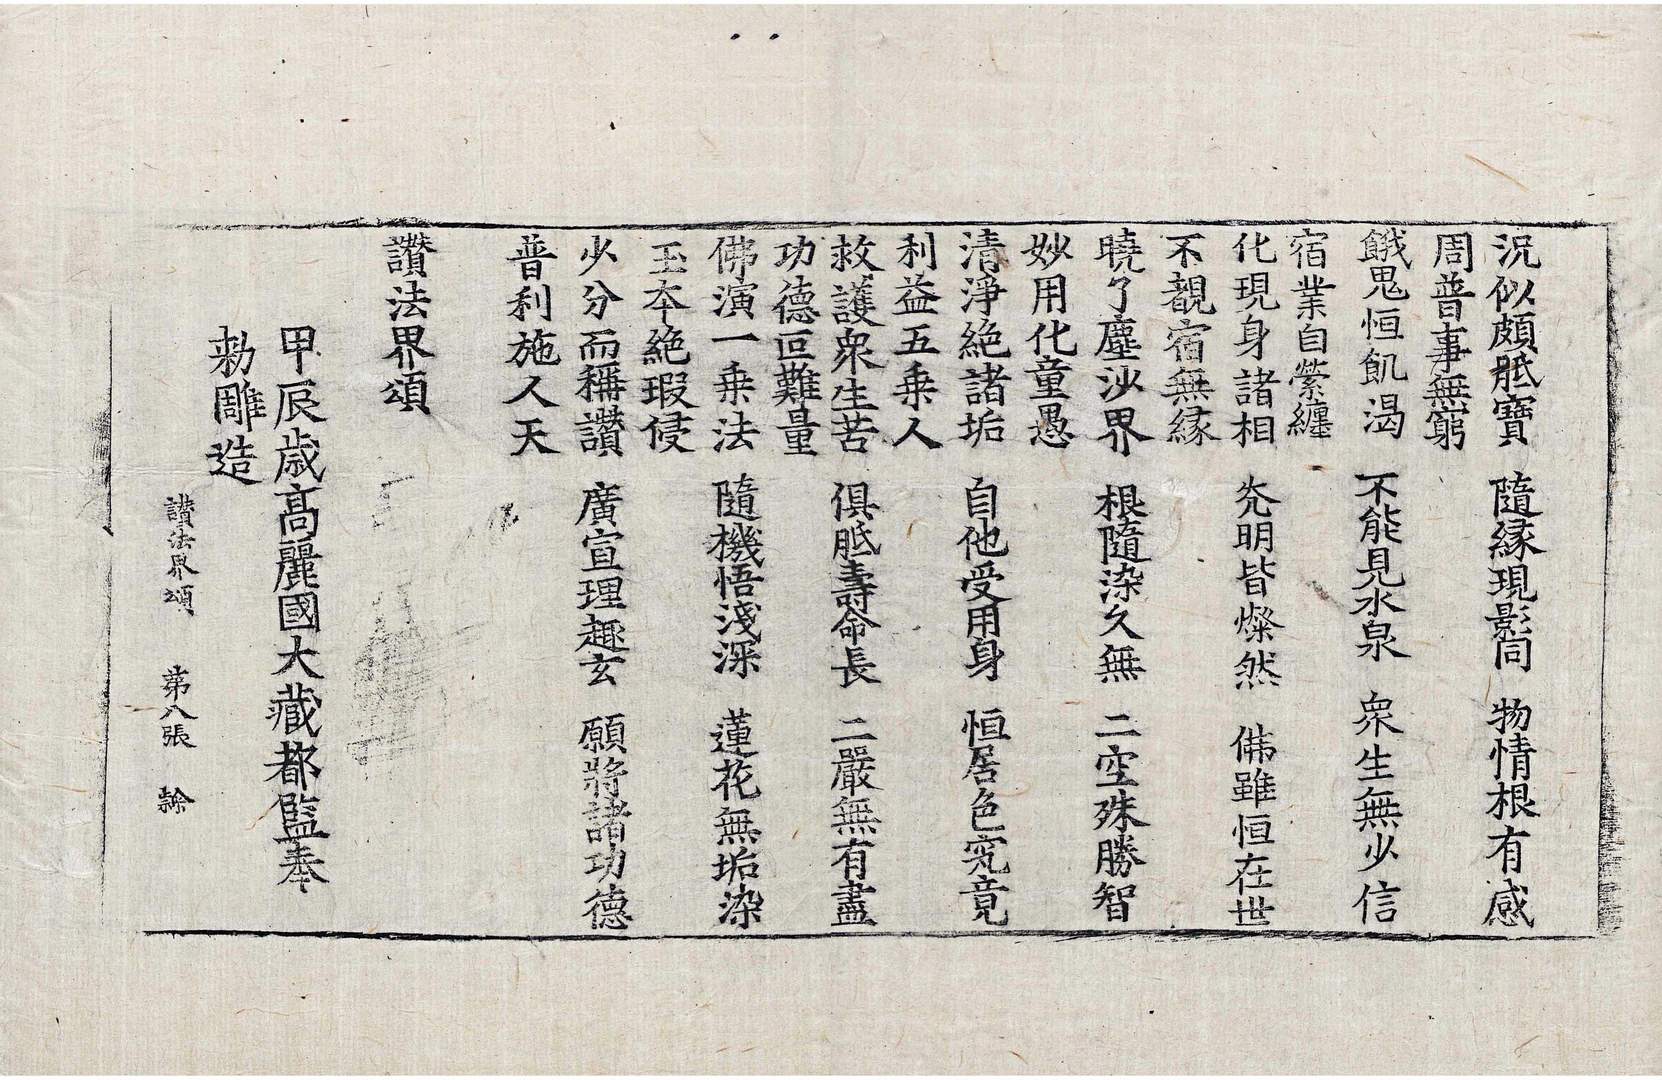 況似頗胝寶　隨緣現影同　物情根有感
周普事無窮
餓鬼恒飢渴　不能見水泉　衆生無少信
宿業自縈纏
化現身諸相　光明皆燦然　佛雖恒在世
不覩宿無緣
曉了塵沙界　根隨染久無　二空殊勝智
妙用化童愚
清淨絕諸垢　自他受用身　恒居色究竟
利益五乗人
救護衆生苦　俱胝壽命長　二嚴無有盡
功德叵難量
佛演一乗法　隨機悟淺深　蓮花無垢染
玉本絕瑕侵
少分而稱讚　廣宣理趣玄　願將諸功德
普利施人天
讚法界頌
甲辰歲高麗國大藏都監奉
勅雕造
讚法界頌　第八張